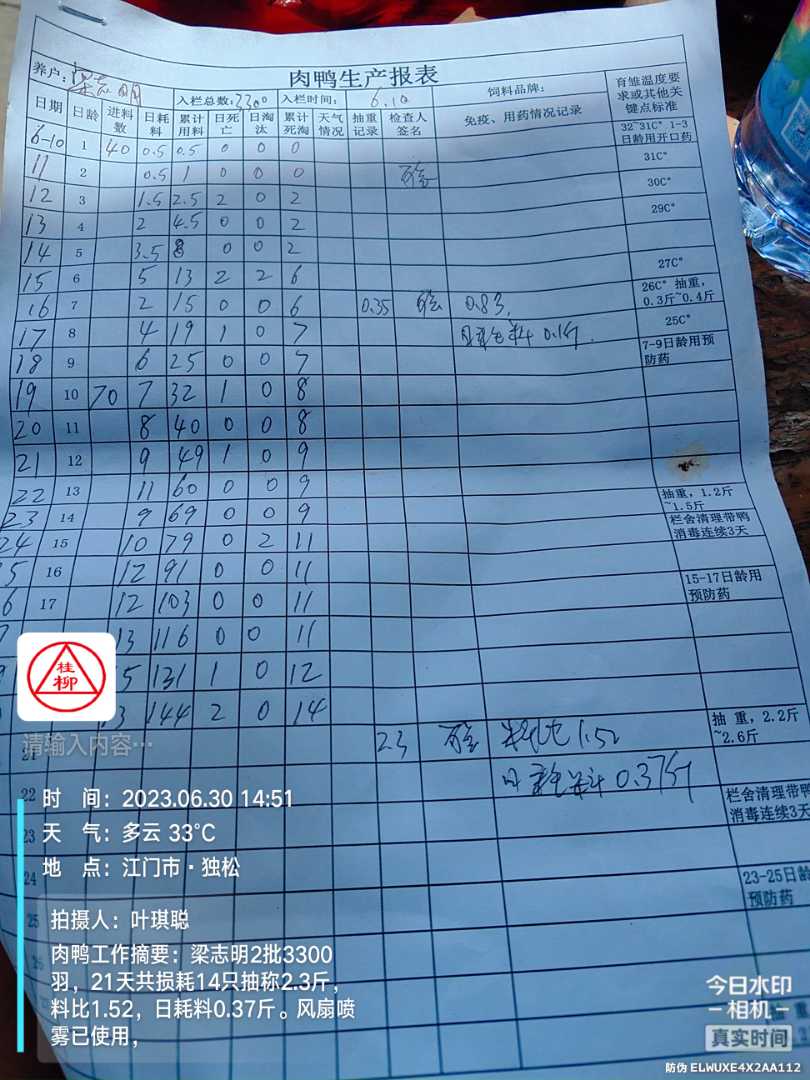 肉鸭生产报表
养户：梁志明 入栏总数：3300 入栏时间：6.10 饲料品牌： 育雏温度要求或其他关键点标准
日期 日龄 进料数 日耗料 累计用料 日死亡 日淘汰 累计死淘 天气情况 抽重记录 检查人签名 免疫、用药情况记录
6-10 1 40 0.5 0.5 0 0 0 32~31C° 1-3日龄用开口药
11 2 0.5 1 0 0 0 31C°
12 3 1.5 2.5 2 0 2 30C°
13 4 2 4.5 0 0 2 29C°
14 5 3.5 8 0 0 2
15 6 5 13 2 2 6 27C°
16 7 2 15 0 0 6 0.35 0.83, 26C° 抽重，0.3斤~0.4斤
17 8 4 19 1 0 7 日耗料 0.1斤. 25C°
18 9 6 25 0 0 7 7-9日龄用预防药
19 10 70 7 32 1 0 8
20 11 8 40 0 0 8
21 12 9 49 1 0 9
22 13 11 60 0 0 9
23 14 9 69 0 0 9 抽重，1.2斤~1.5斤
24 15 10 79 0 2 11 栏舍清理带鸭消毒连续3天
5 16 12 91 0 0 11
6 17 12 103 0 0 11 15-17日龄用预防药
13 116 0 0 11
5 131 1 0 12
3 144 2 0 14
21 2.3 料比 1.52 抽 重，2.2斤~2.6斤
22 日耗料 0.37斤 栏舍清理带鸭消毒连续3天
23
24 23-25日龄 预防药
25
桂柳
请输入内容…
时 间：2023.06.30 14:51
天 气：多云 33℃
地 点：江门市·独松
拍摄人：叶琪聪
肉鸭工作摘要：梁志明2批3300
羽，21天共损耗14只抽称2.3斤，
料比1.52，日耗料0.37斤。风扇喷
雾已使用，
今日水印
相机
真实时间
防伪 ELWUXE4X2AA112